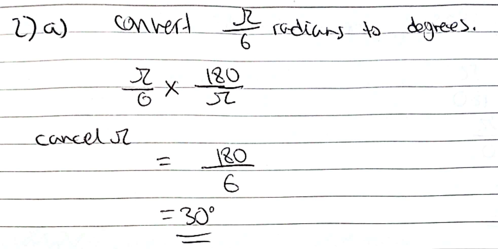 2) a) convert π/6 radians to degrees.
π/6 × 180/π
cancel π
= 180/6
= 30°